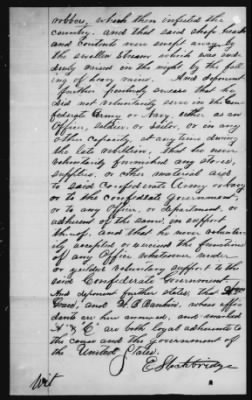 robbers, which then infested the
country, and that said shop, house
and contents were swept away by
the swollen stream which was sud-
denly raised in the night by the fall-
ing of heavy rains. And deponent
further positively swears that he
did not voluntarily serve in the Con-
federate Army or Navy, either as an
Officer, soldier or sailor, or in any
other capacity, at any time during
the late rebellion, that he never
voluntarily furnished any stores,
supplies, or other material aid
to said Confederate Army or Navy
or to the confederate government,
or to any officer, or department, or
adherent of the same, in support
thereof, and that he never volunta-
rily accepted or exercised the functions
of any Office whatsoever under
or yielded voluntary support to the
said Confederate Government.
And deponent further states, that
and whose affi-
davits are here annexed, and marked
"C" are both loyal adherents to
the cause and the Government of
the United States.
E Stockbridge